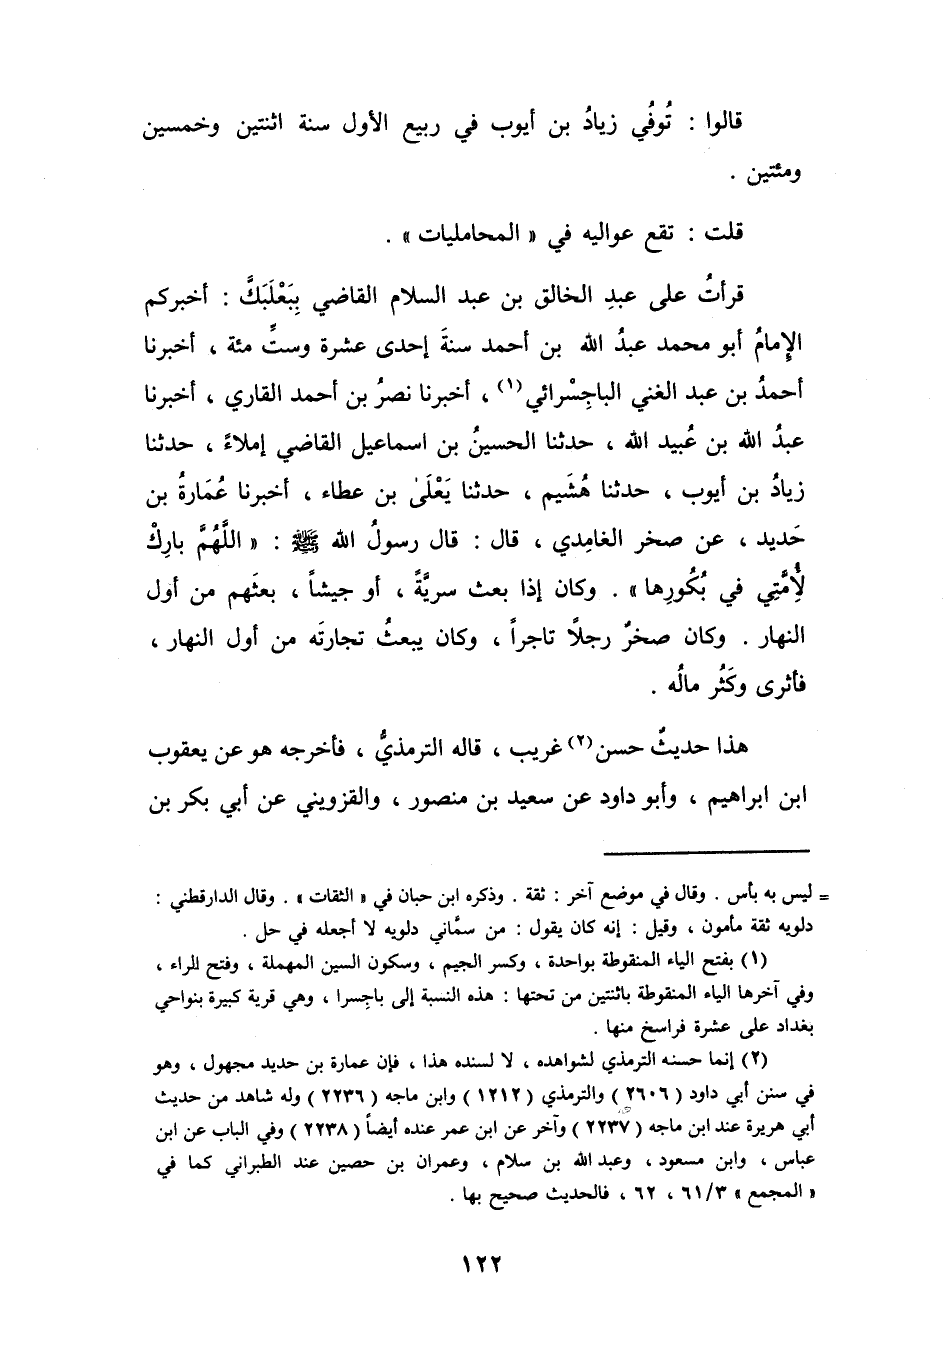 قالوا : تُوفُي زيادُ بن أيوب في ربيع الأول سنة اثنتين وخمسين
ومئتين .
قلت : تقع عواليه في « المحامليات » .
قرأتُ على عبدِ الخالق بن عبد السلام القاضي بِبَعْلَبَكَّ : أخبركم
الإِمامُ أبو محمد عبدُ الله بن أحمد سنةَ إحدى عشرة وستِّ مئة ، أخبرنا
أحمدُ بن عبد الغني الباجِسْرائي(١) ، أخبرنا نصرُ بن أحمد القاري ، أخبرنا
عبدُ الله بن عُبيد الله ، حدثنا الحسينُ بن اسماعيل القاضي إملاءً ، حدثنا
زيادُ بن أيوب ، حدثنا هُشَيم ، حدثنا يَعْلَىٰ بن عطاء ، أخبرنا عُمَارةُ بن
حَديد ، عن صخر الغامِدي ، قال : قال رسولُ الله ﷺ : « اللَّهُمَّ بارِكْ
لِأُمَّتِي في بُكُورِها » . وكان إذا بعث سريَّةً ، أو جيشاً ، بعثَهم من أول
النهار . وكان صخرٌ رجلاً تاجراً ، وكان يبعثُ تجارتَه من أول النهار ،
فأثرى وكَثُر مالُه .
هذا حديثٌ حسن(٢) غريب ، قاله الترمذيُّ ، فأخرجه هو عن يعقوب
ابن ابراهيم ، وأبو داود عن سعيد بن منصور ، والقزويني عن أبي بكر بن
= ليس به بأس . وقال في موضع آخر : ثقة . وذكره ابن حبان في « الثقات » . وقال الدارقطني :
دلويه ثقة مأمون ، وقيل : إنه كان يقول : من سمَّاني دلويه لا أجعله في حل .
(١) بفتح الياء المنقوطة بواحدة ، وكسر الجيم ، وسكون السين المهملة ، وفتح الراء ،
وفي آخرها الياء المنقوطة باثنتين من تحتها : هذه النسبة إلى باجِسرا ، وهي قرية كبيرة بنواحي
بغداد على عشرة فراسخ منها .
(٢) إنما حسنه الترمذي لشواهده ، لا لسنده هذا ، فإن عمارة بن حديد مجهول ، وهو
في سنن أبي داود ( ٢٦٠٦ ) والترمذي ( ١٢١٢ ) وابن ماجه ( ٢٢٣٦ ) وله شاهد من حديث
أبي هريرة عند ابن ماجه ( ٢٢٣٧ ) وآخر عن ابن عمر عنده أيضاً ( ٢٢٣٨ ) وفي الباب عن ابن
عباس ، وابن مسعود ، وعبد الله بن سلام ، وعمران بن حصين عند الطبراني كما في
« المجمع » ٦١/٣ ، ٦٢ ، فالحديث صحيح بها .
١٢٢